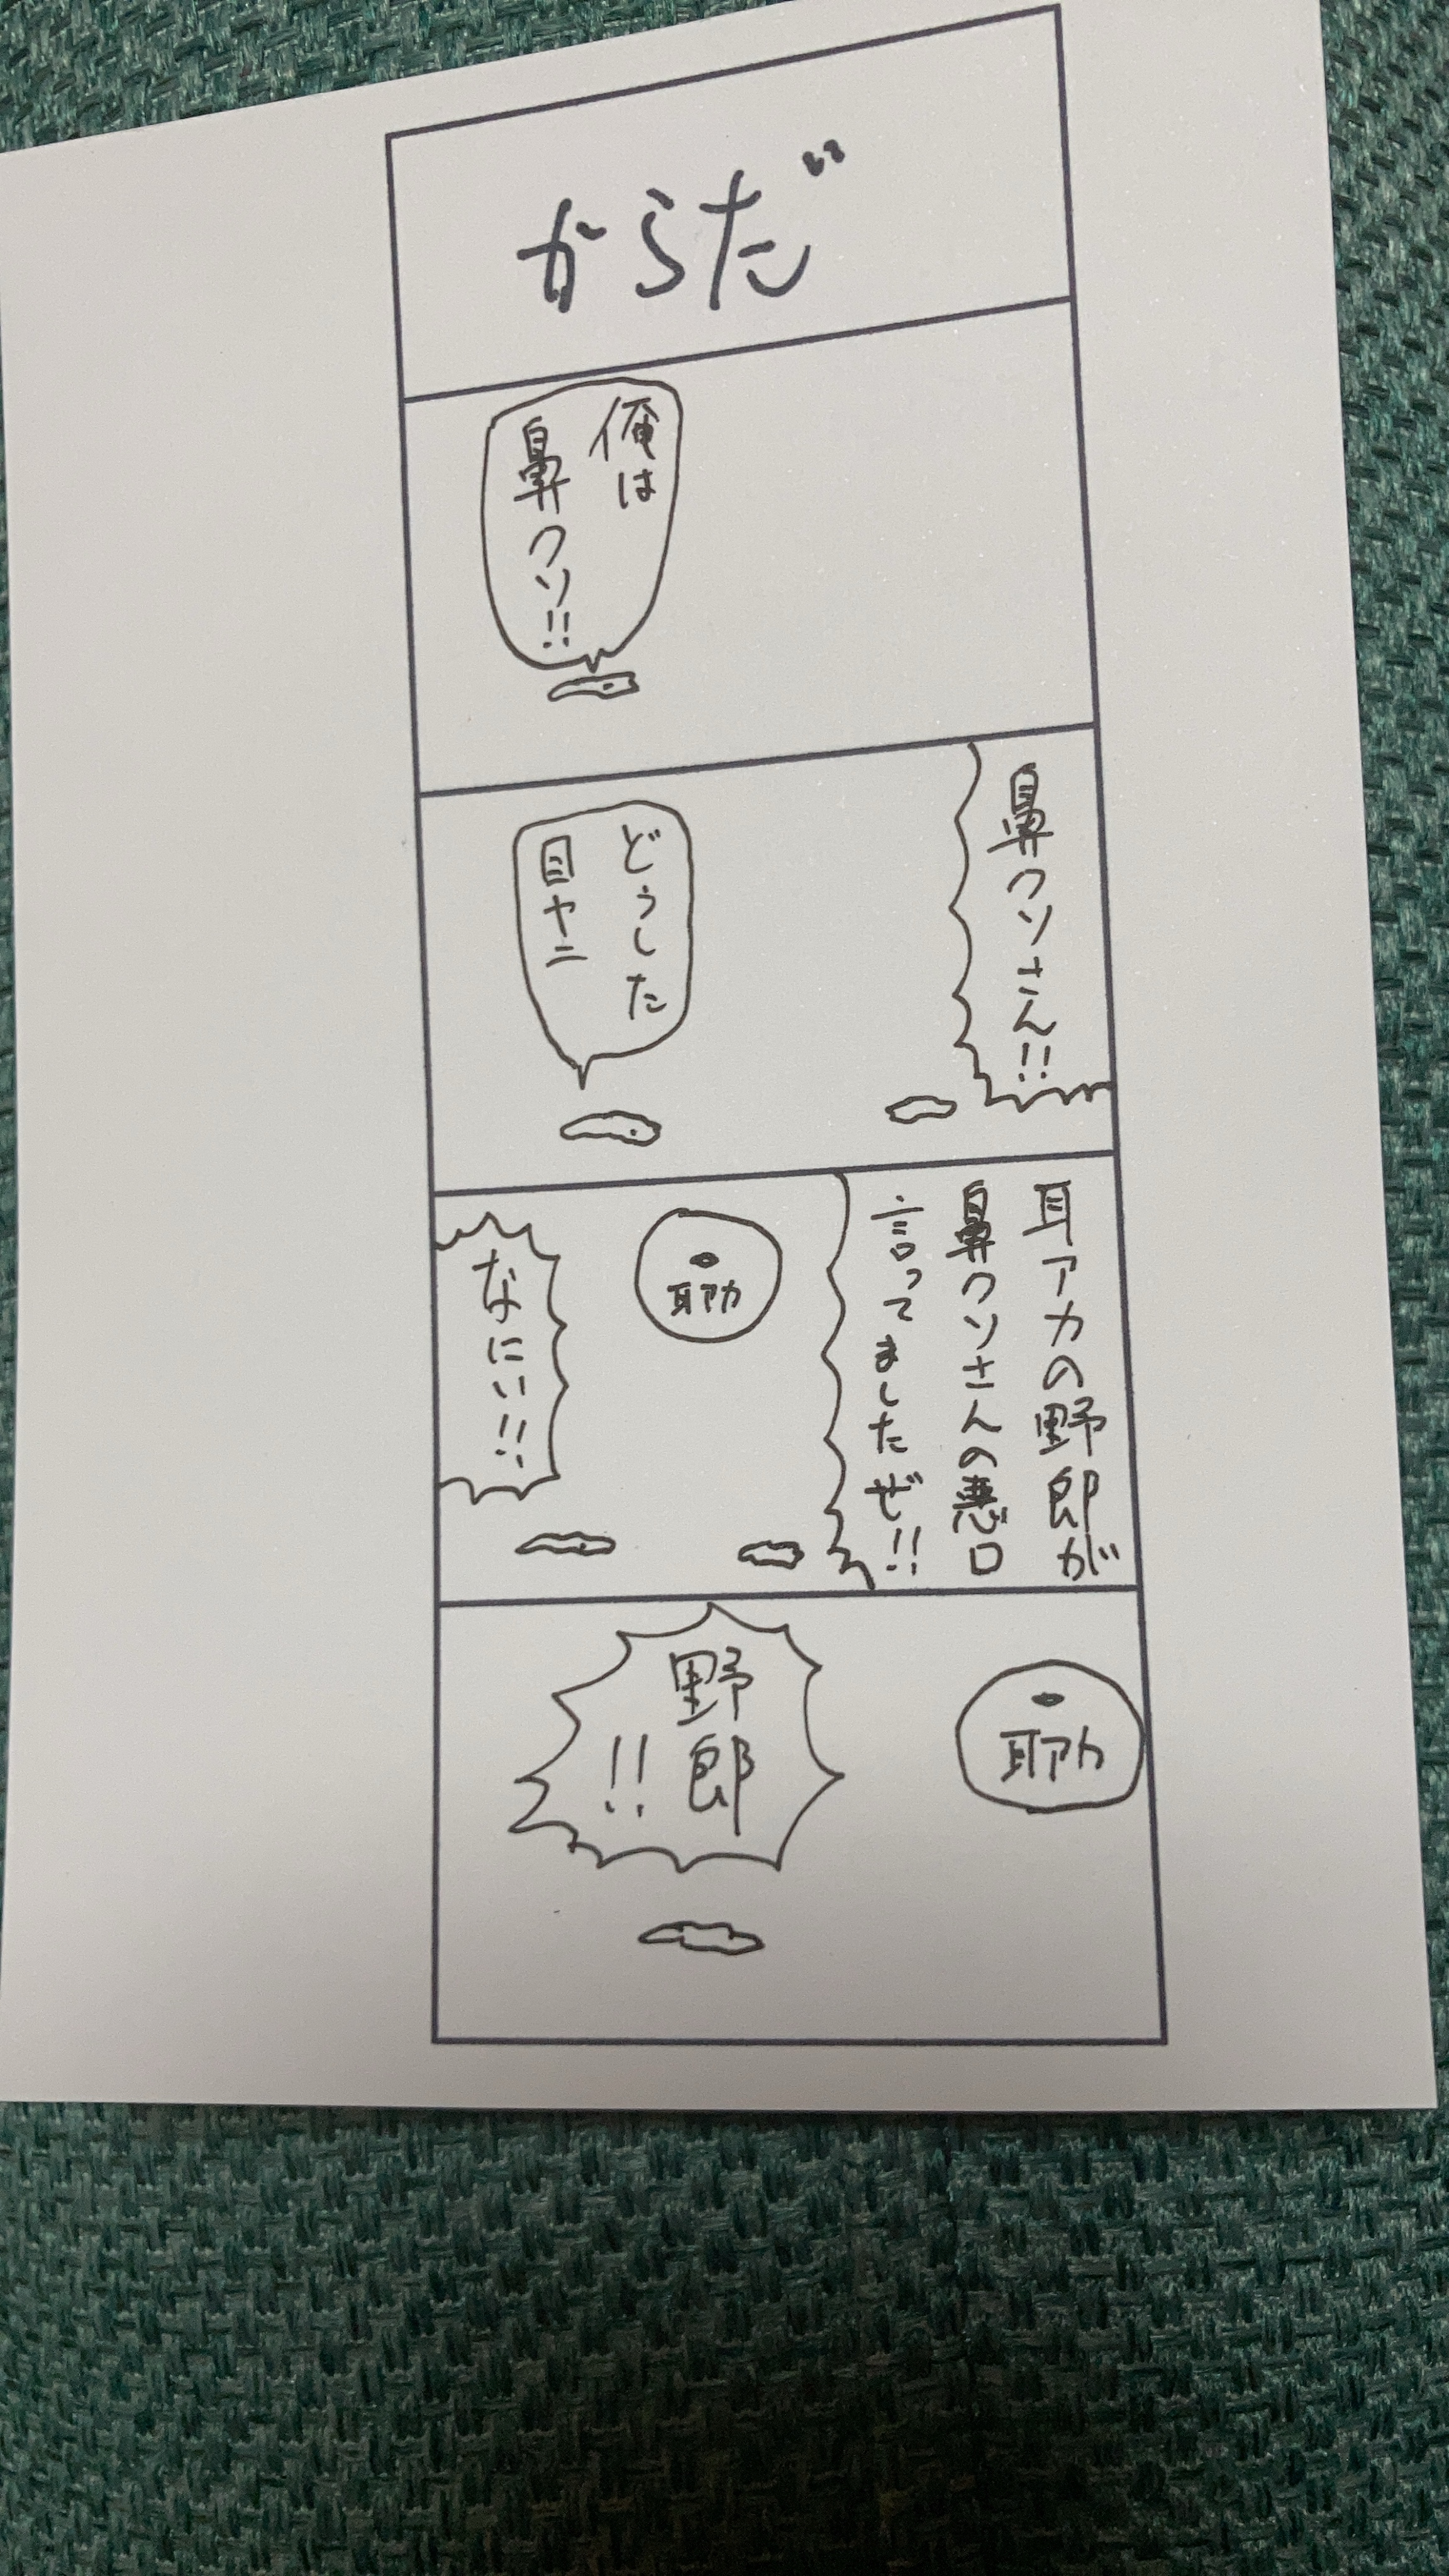 からだ
俺は
鼻クソ!!
鼻クソさん!!
どうした
目ヤニ
耳アカの野郎が
鼻クソさんの悪口
言ってましたぜ!!
耳アカ
なにい!!
耳アカ
野郎
!!